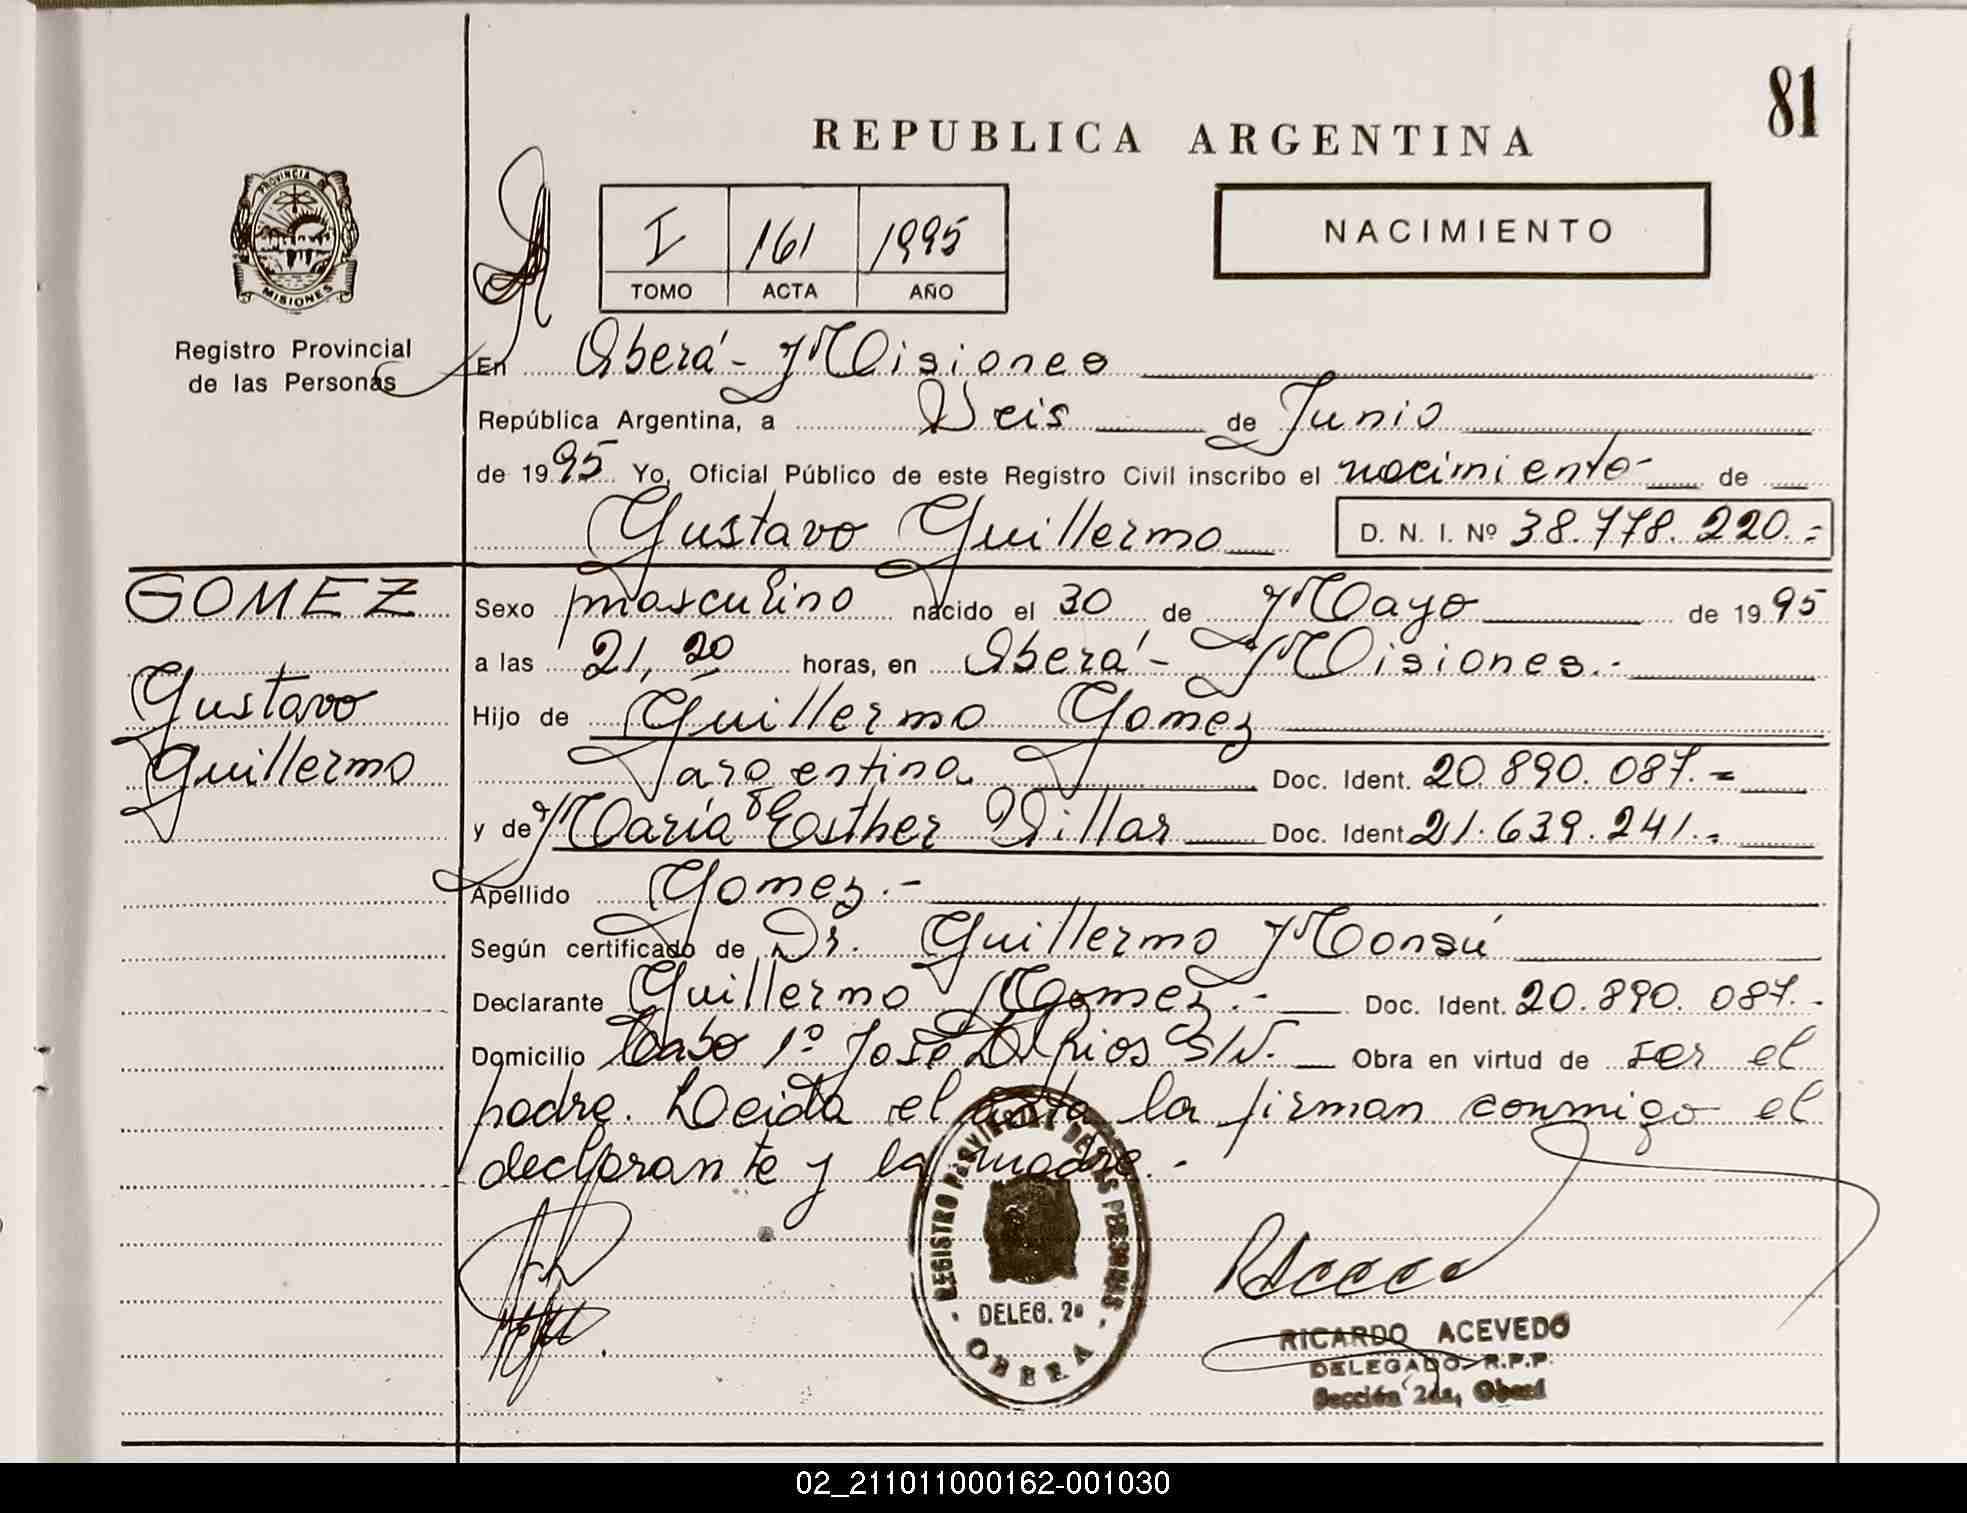 81
REPUBLICA ARGENTINA
PROVINCIA D
MISIONES
Registro Provincial
de las Personas
I 161 1995
TOMO ACTA AÑO
NACIMIENTO
En Oberá - Misiones
República Argentina, a Seis de Junio
de 1995 Yo, Oficial Público de este Registro Civil inscribo el nacimiento de
Gustavo Guillermo D. N. I. Nº 38.778.220.=
GOMEZ
Gustavo
Guillermo
Sexo masculino nacido el 30 de Mayo de 1995
a las 21,20 horas, en Oberá - Misiones.-
Hijo de Guillermo Gomez
argentina Doc. Ident. 20.890.087.=
y de María Esther Villar Doc. Ident. 21.639.241.=
Apellido Gomez.-
Según certificado de Dr. Guillermo Monsú
Declarante Guillermo Gomez.- Doc. Ident. 20.890.087.-
Domicilio Cabo 1º José Ríos S/N. Obra en virtud de ser el
padre. Leida el acta la firman conmigo el
declarante y la madre.-
REGISTRO PROVINCIAL DE LAS PERSONAS
DELEG. 2ª
OBERA
RICARDO ACEVEDO
DELEGADO R.P.P.
Sección 2da, Oberá
02_211011000162-001030